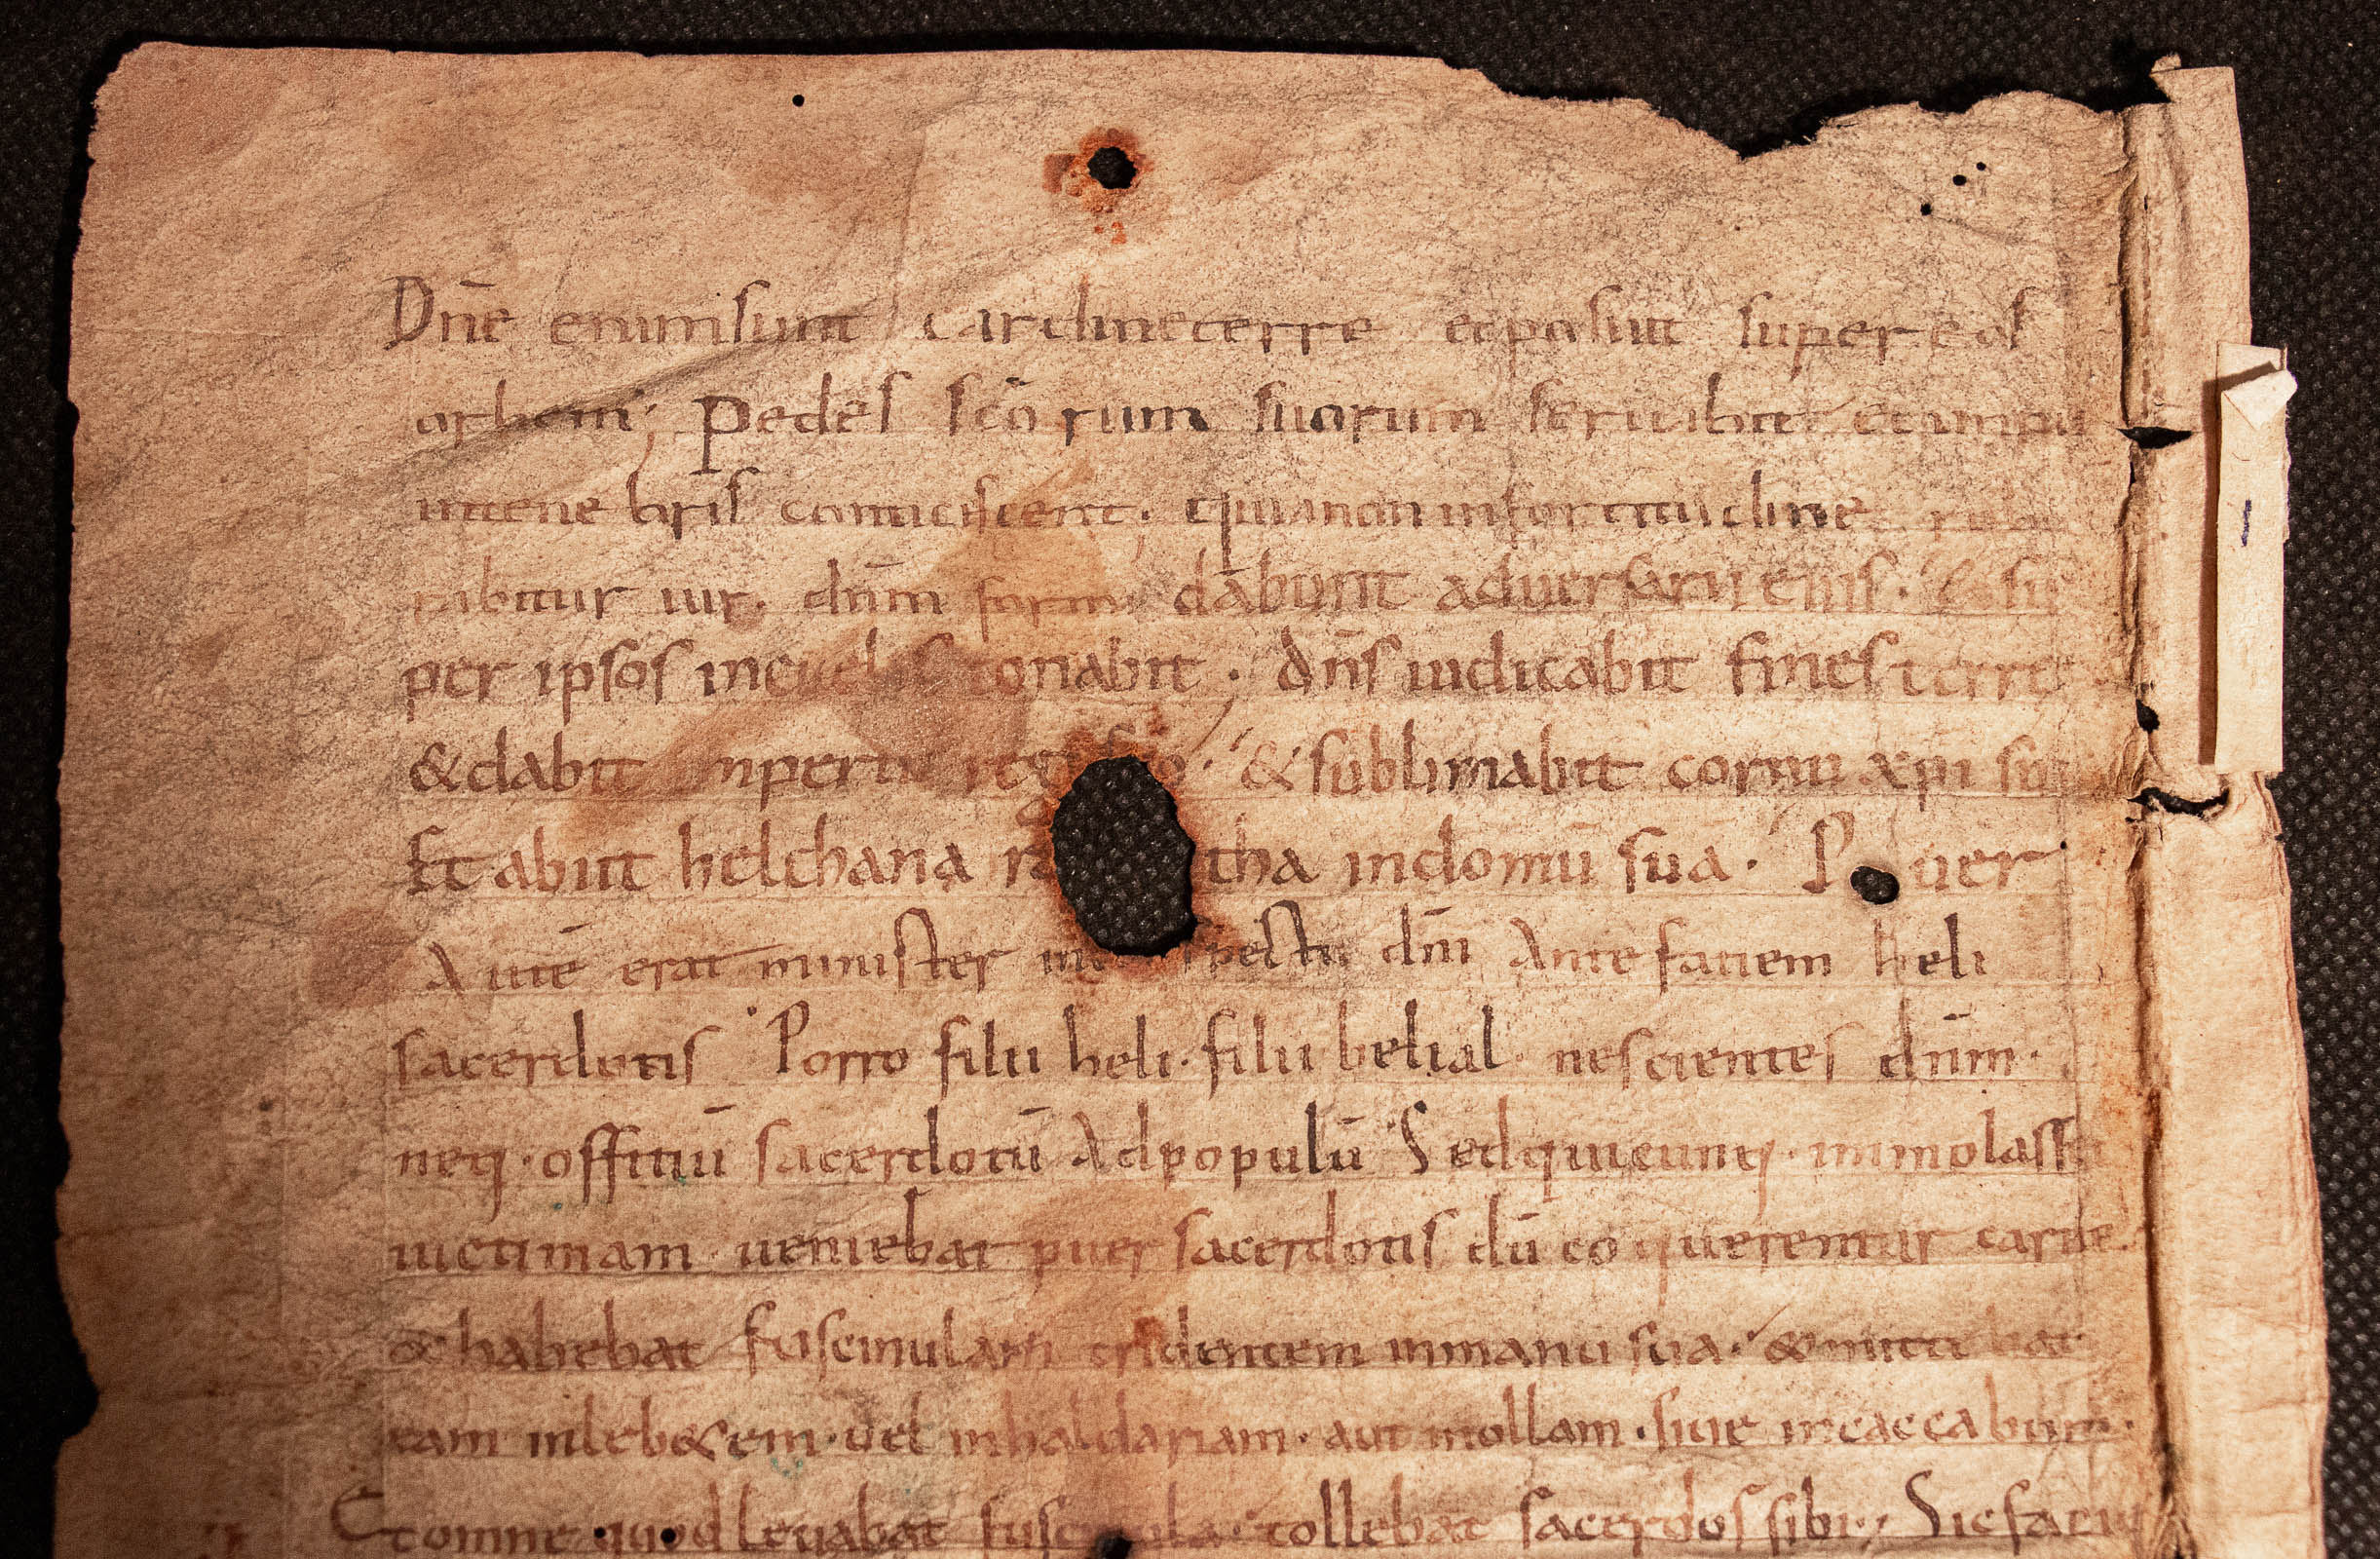 Dñe enim sunt cardine terre et posuit super eos
orbem; Pedes scõrum suorum seruabit et impii
intenebris conticiscent; quia non infortitudine
rabitur uir. dñm formi dabunt aduersarii eius.
per ipsos incuelis tonabit. dñs iudicabit fines terre
& dabit inperiū regi suo. & sublimabit cornu xpi sui
Et abiit helchana tha indomū suā. P uer
Autē erat minister in spectu dñi Ante faciem heli
sacerdotis Porro filii heli. filii belial. nescientes dñm.
neq; offitiū sacerdotū Adpopulū Sed quicunq; immolasset
uictimam ueniebat puer sacerdotis dū coquerentur carne
& habebat fuscinulam tridentem inmanu sua. & mitte bat
eam inleb&em. uel inhaldariam. aut inollam. siue incaccabum.
Et omne quod leuabat tollebat sacerdos sibi; Sic
1